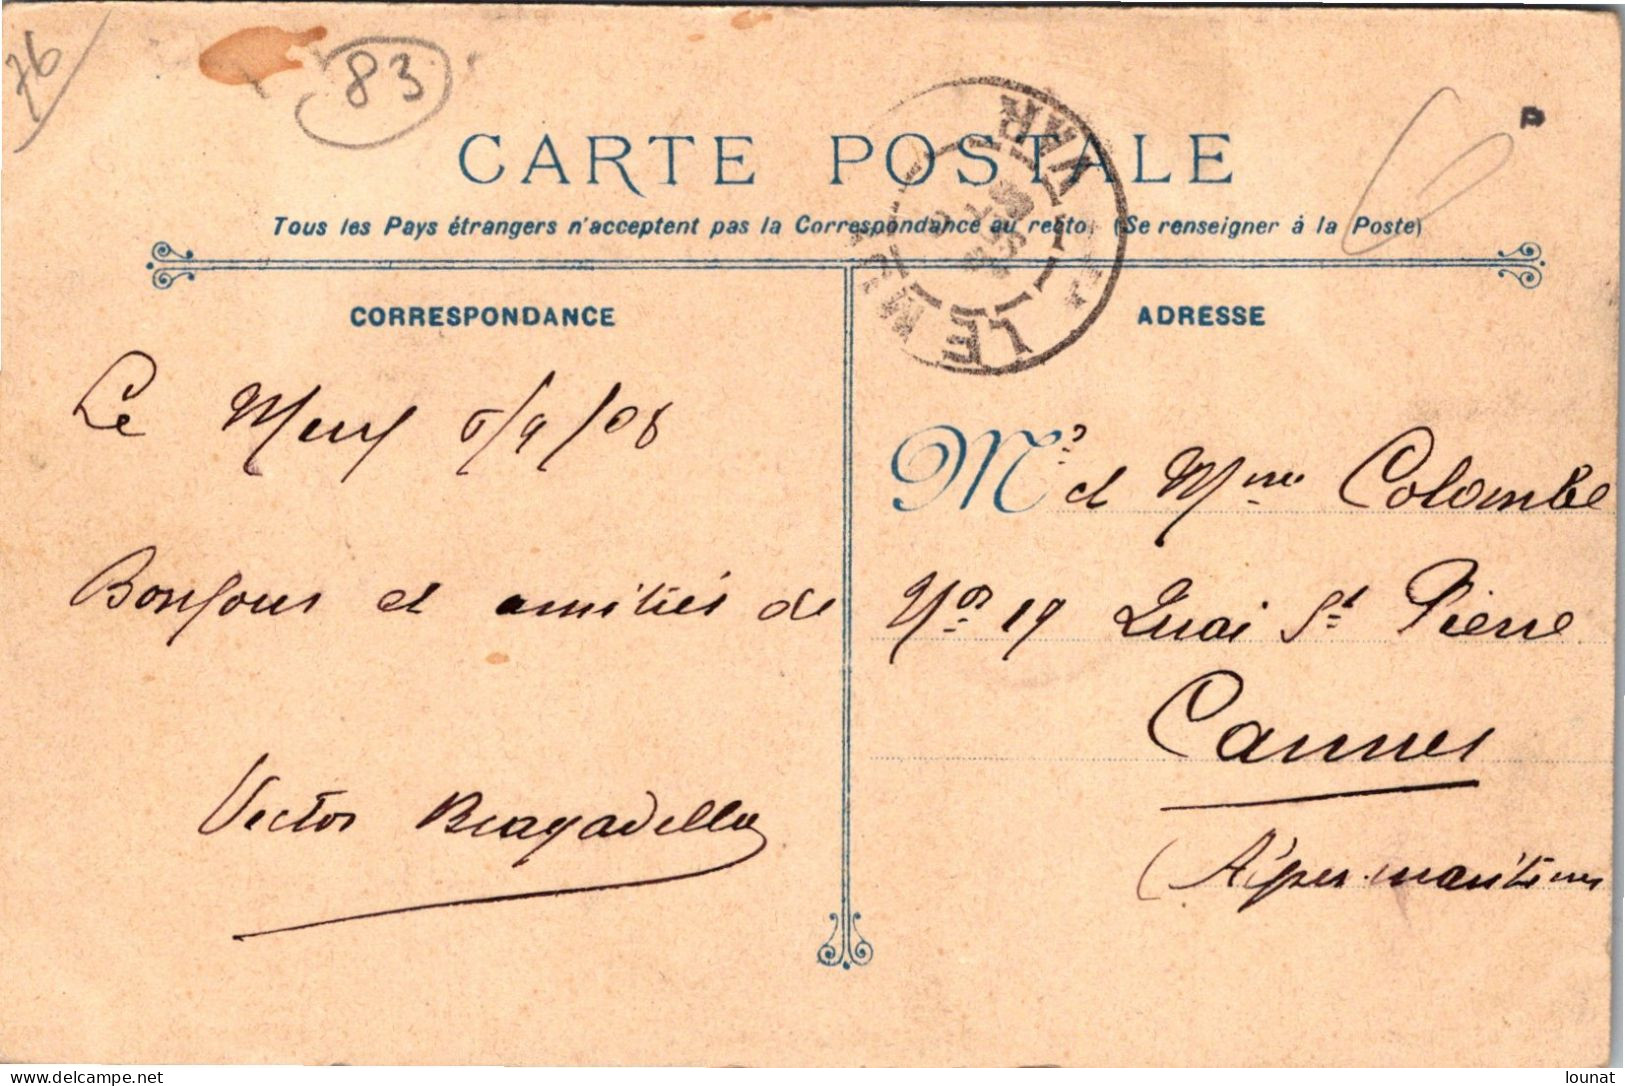 76
83
CARTE POSTALE
Tous les Pays étrangers n'acceptent pas la Correspondance au recto. (Se renseigner à la Poste)
LE MUY
VAR
CORRESPONDANCE
ADRESSE
Le Muy 6/9/08
Bonjour et amitiés de
Victor Bragadella
Mr et Mme Colombe
No 19 Quai St Pierre
Cannes
(Alpes-maritimes
Delcampe.net
lounat